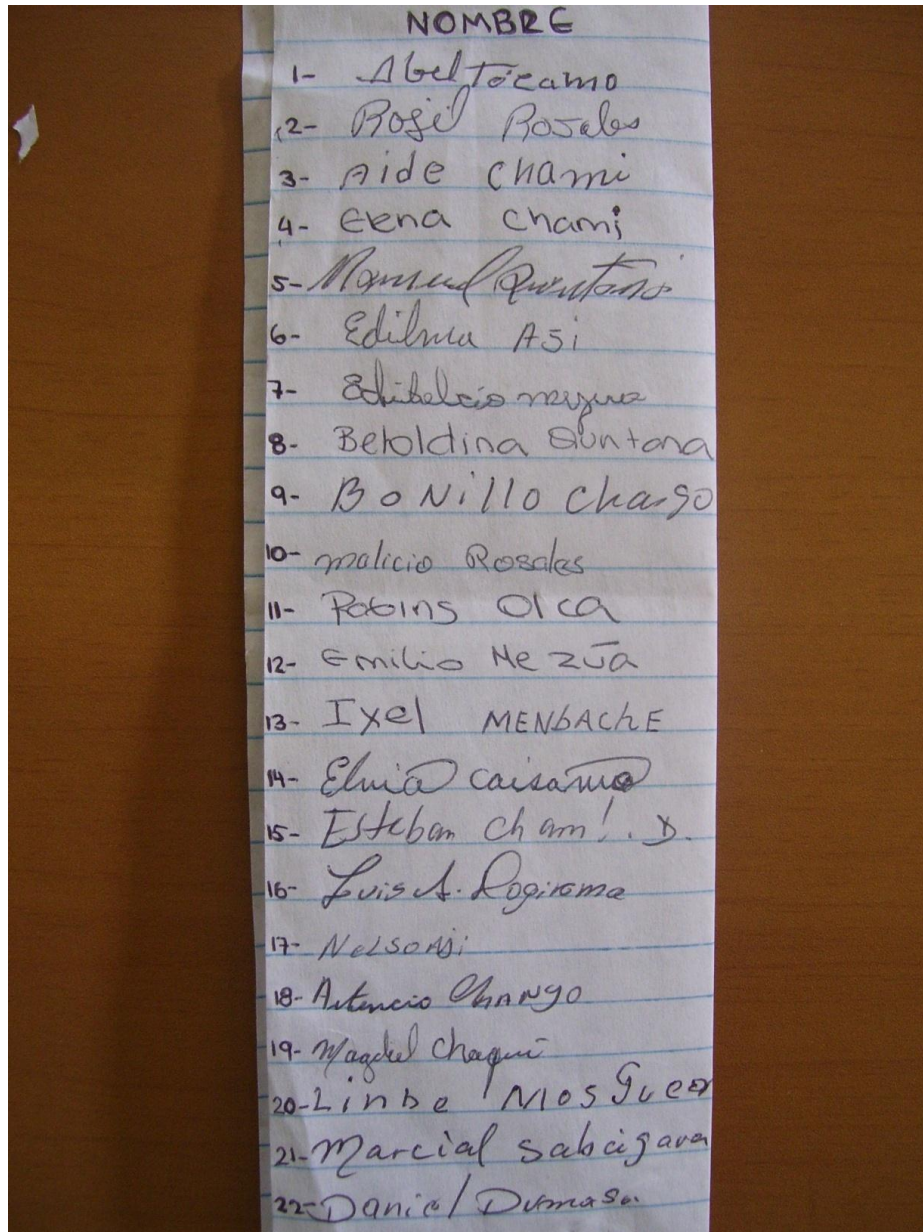 NOMBRE
1- Abel Tócamo
2- Rogil Rosales
3- Aide Chami
4- Elena Chami
5- Manuel Quintana
6- Edilma Asi
7-
8- Beboldina Quntana
9- BoNillo Chango
10- malicio Rosales
11- Robins Olea
12- Emilio Mezúa
13- Ixel MENbAChE
14- Elvia Caisamo
15- Esteban Cham!. D.
16- Luis A. Dogirama
17- Nelson Asi
18- Chango
19- Magdiel Chaqui
20- Linbe
21- Marcial Sabúgara
22- Daniel Dumasa.